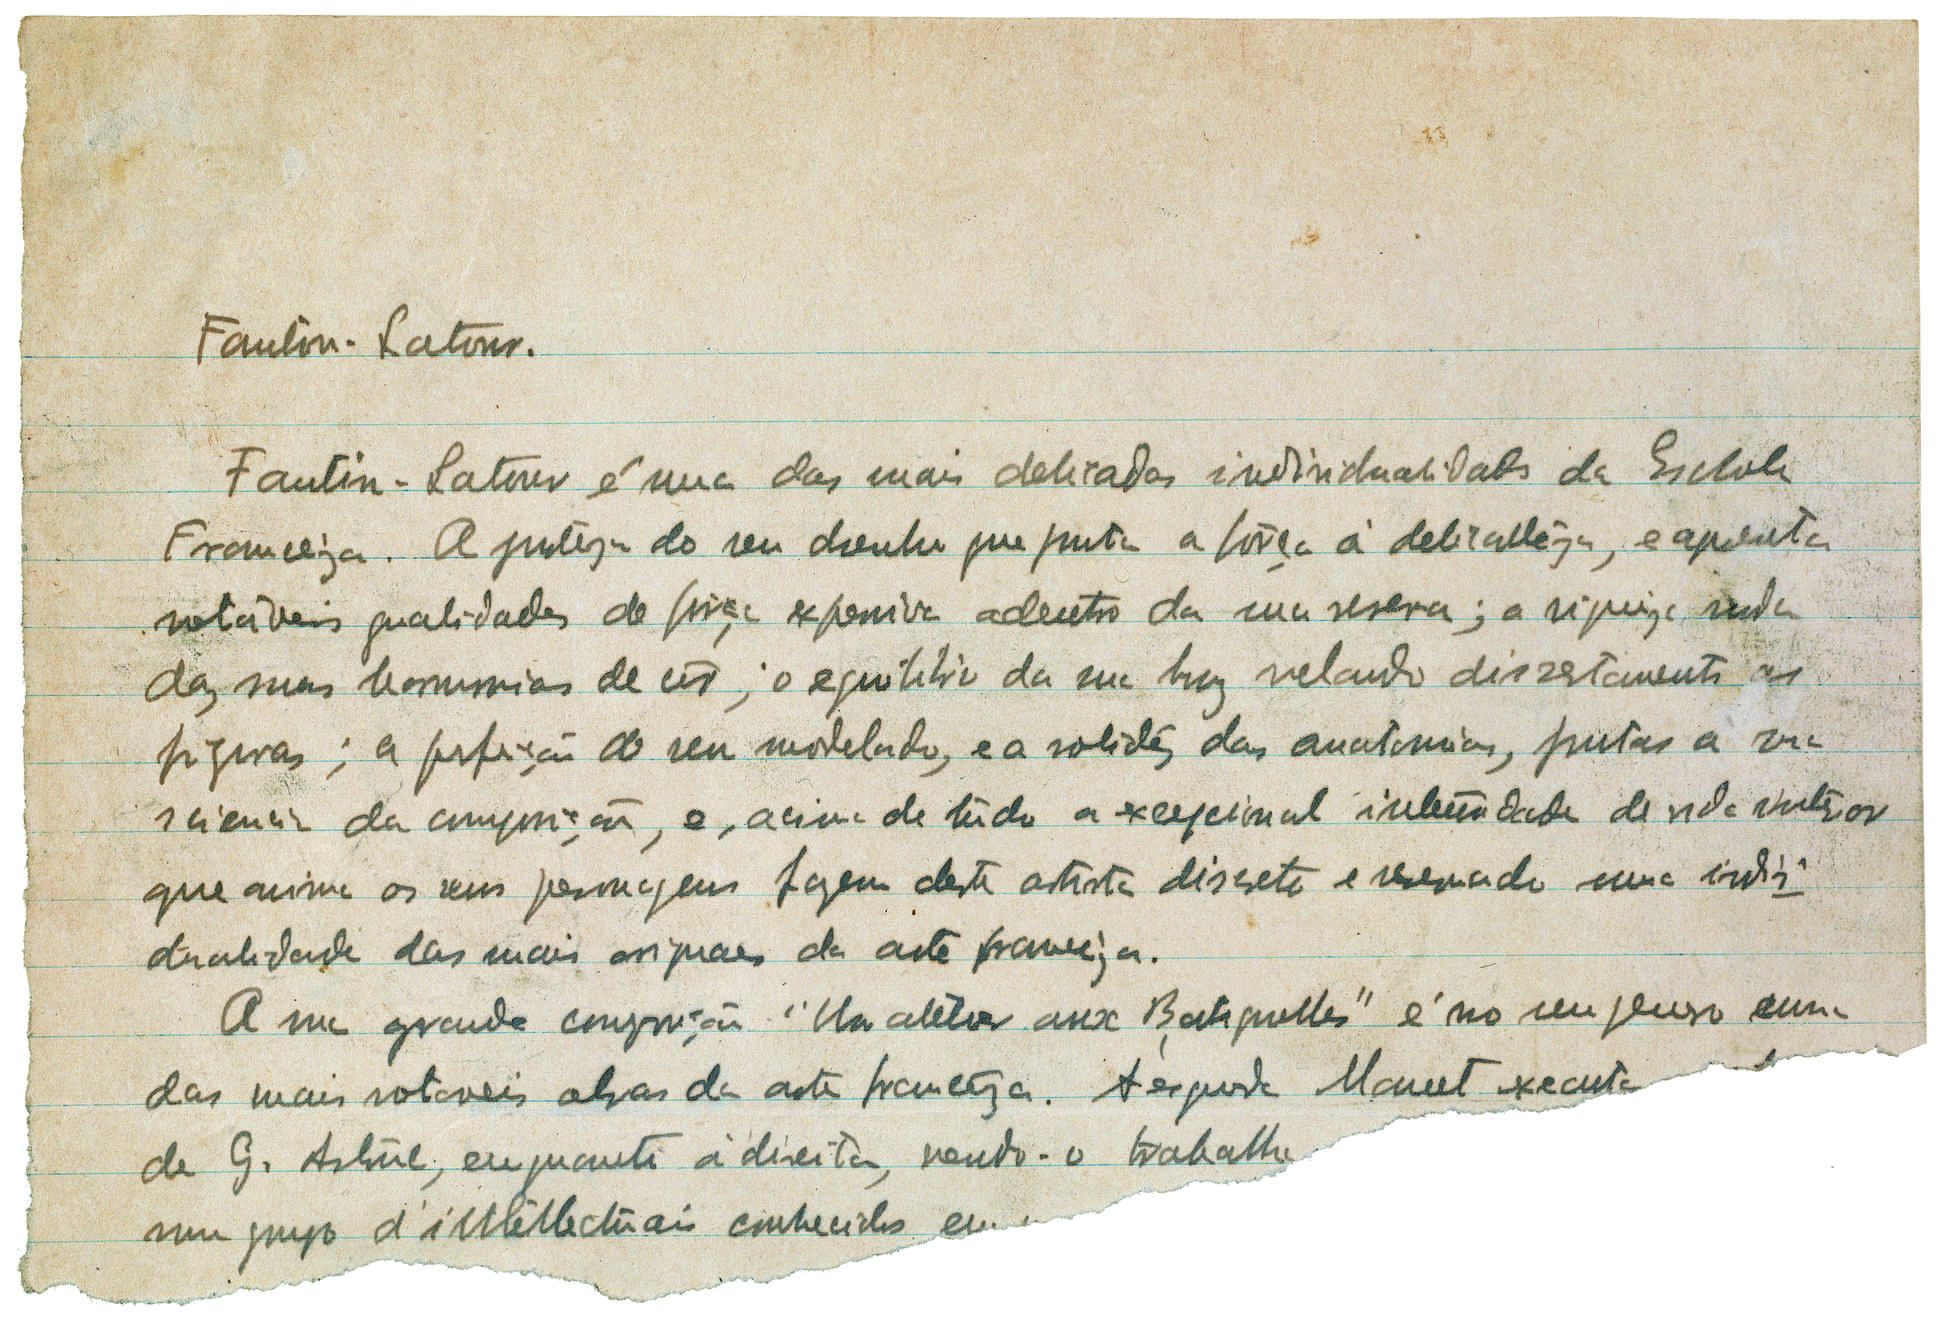 Fantin-Latour.
Fantin-Latour é uma das mais delicadas individualidades da Escola
Franceza. A do seu desenho que junta a fôrça á delicadêza, e aprezenta
notáveis qualidades de fôrça expressiva adentro da sua reserva; a riqueza
das suas harmonias de côr; o equilibrio da sua luz velando discretamente as
figuras; a perfeição do seu modelado, e a solidêz das anatomias, juntas a sua
sciencia da composição, e, acima de tudo a excepcional intensidade de vida interior
que anima os seus personagens fazem deste artista discreto e reservado uma indivi-
dualidade das mais originaes da arte franceza.
A sua grande composição "Un atelier aux Batignolles" é no seu genero uma
das mais notaveis obras da arte francêza. Á esquerda Manet executa
de G. Astruc, enquanto á direita, vendo-o trabalha
num grupo d'intellectuais conhecidos em